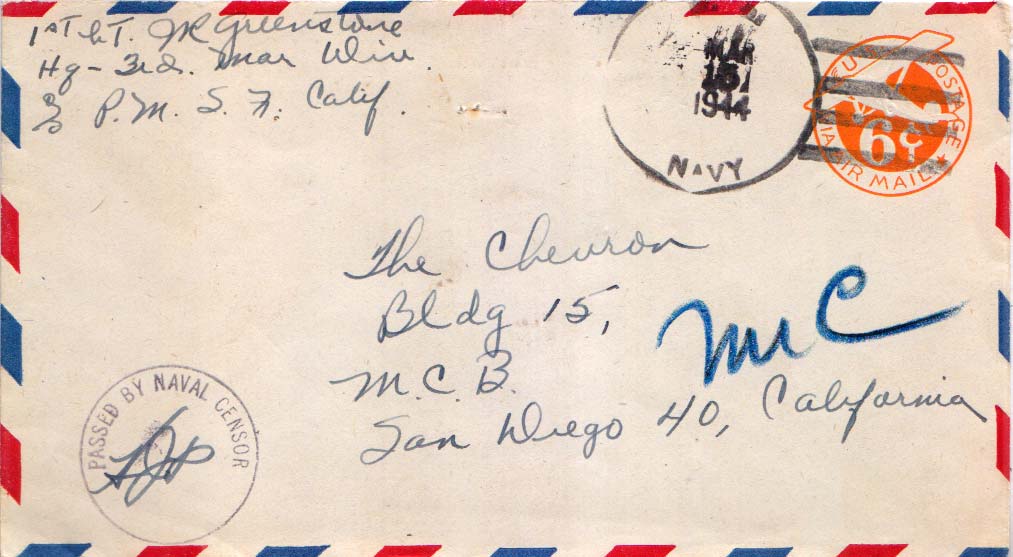 1st Lt. JR Greenstone
Hq - 3rd. Mar Div.
% P.M. S.F. Calif.
MAR
15
1944
NAVY
U POSTAGE
VIA AIR MAIL
6¢
The Chevron
Bldg 15,
M.C.B.
San Diego 40, California
MC
PASSED BY NAVAL CENSOR